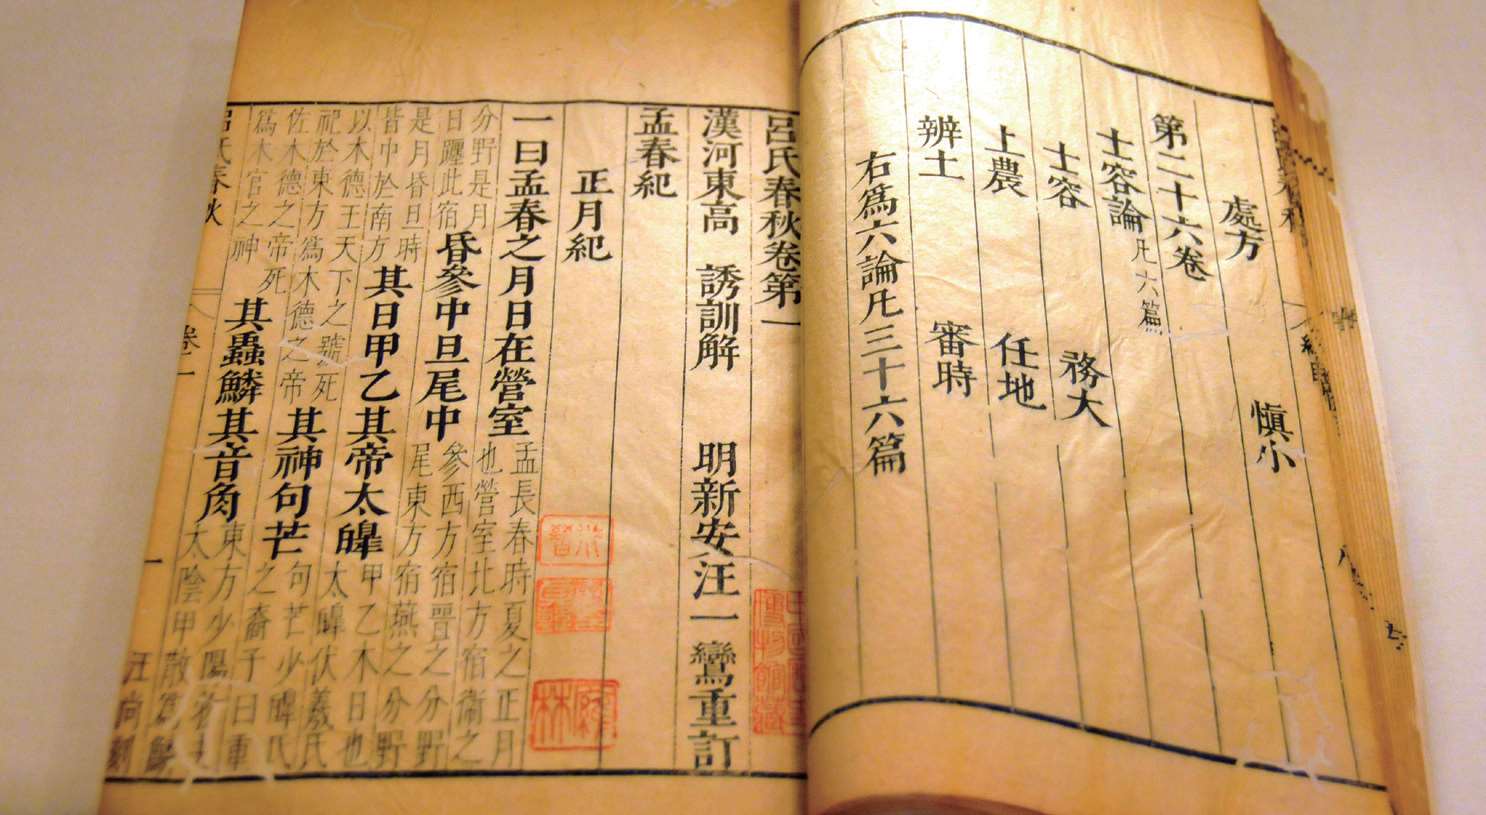 處方
慎小
第二十六卷
士容論凡六篇
士容
務大
上農
任地
辨土
審時
右爲六論凡三十六篇
呂氏春秋卷第一
漢河東高 誘訓解 明新安汪一鸞重訂
孟春紀
正月紀
一曰孟春之月日在營室孟長春時夏之正月
也營室北方宿衞之
分野是月
日躔此宿昏參中旦尾中參西方宿晉之分野
尾東方宿燕之分野
是月昏旦時
皆中於南方其日甲乙其帝太皞甲乙木日也
太皞伏羲氏
以木德王天下之號死
祀於東方爲木德之帝其神句芒句芒少皞氏
之裔子曰重
佐木德之帝死
爲木官之神其蟲鱗其音角東方少陽
太陰甲散爲鱗
呂氏春秋
卷一
一
汪尚刻